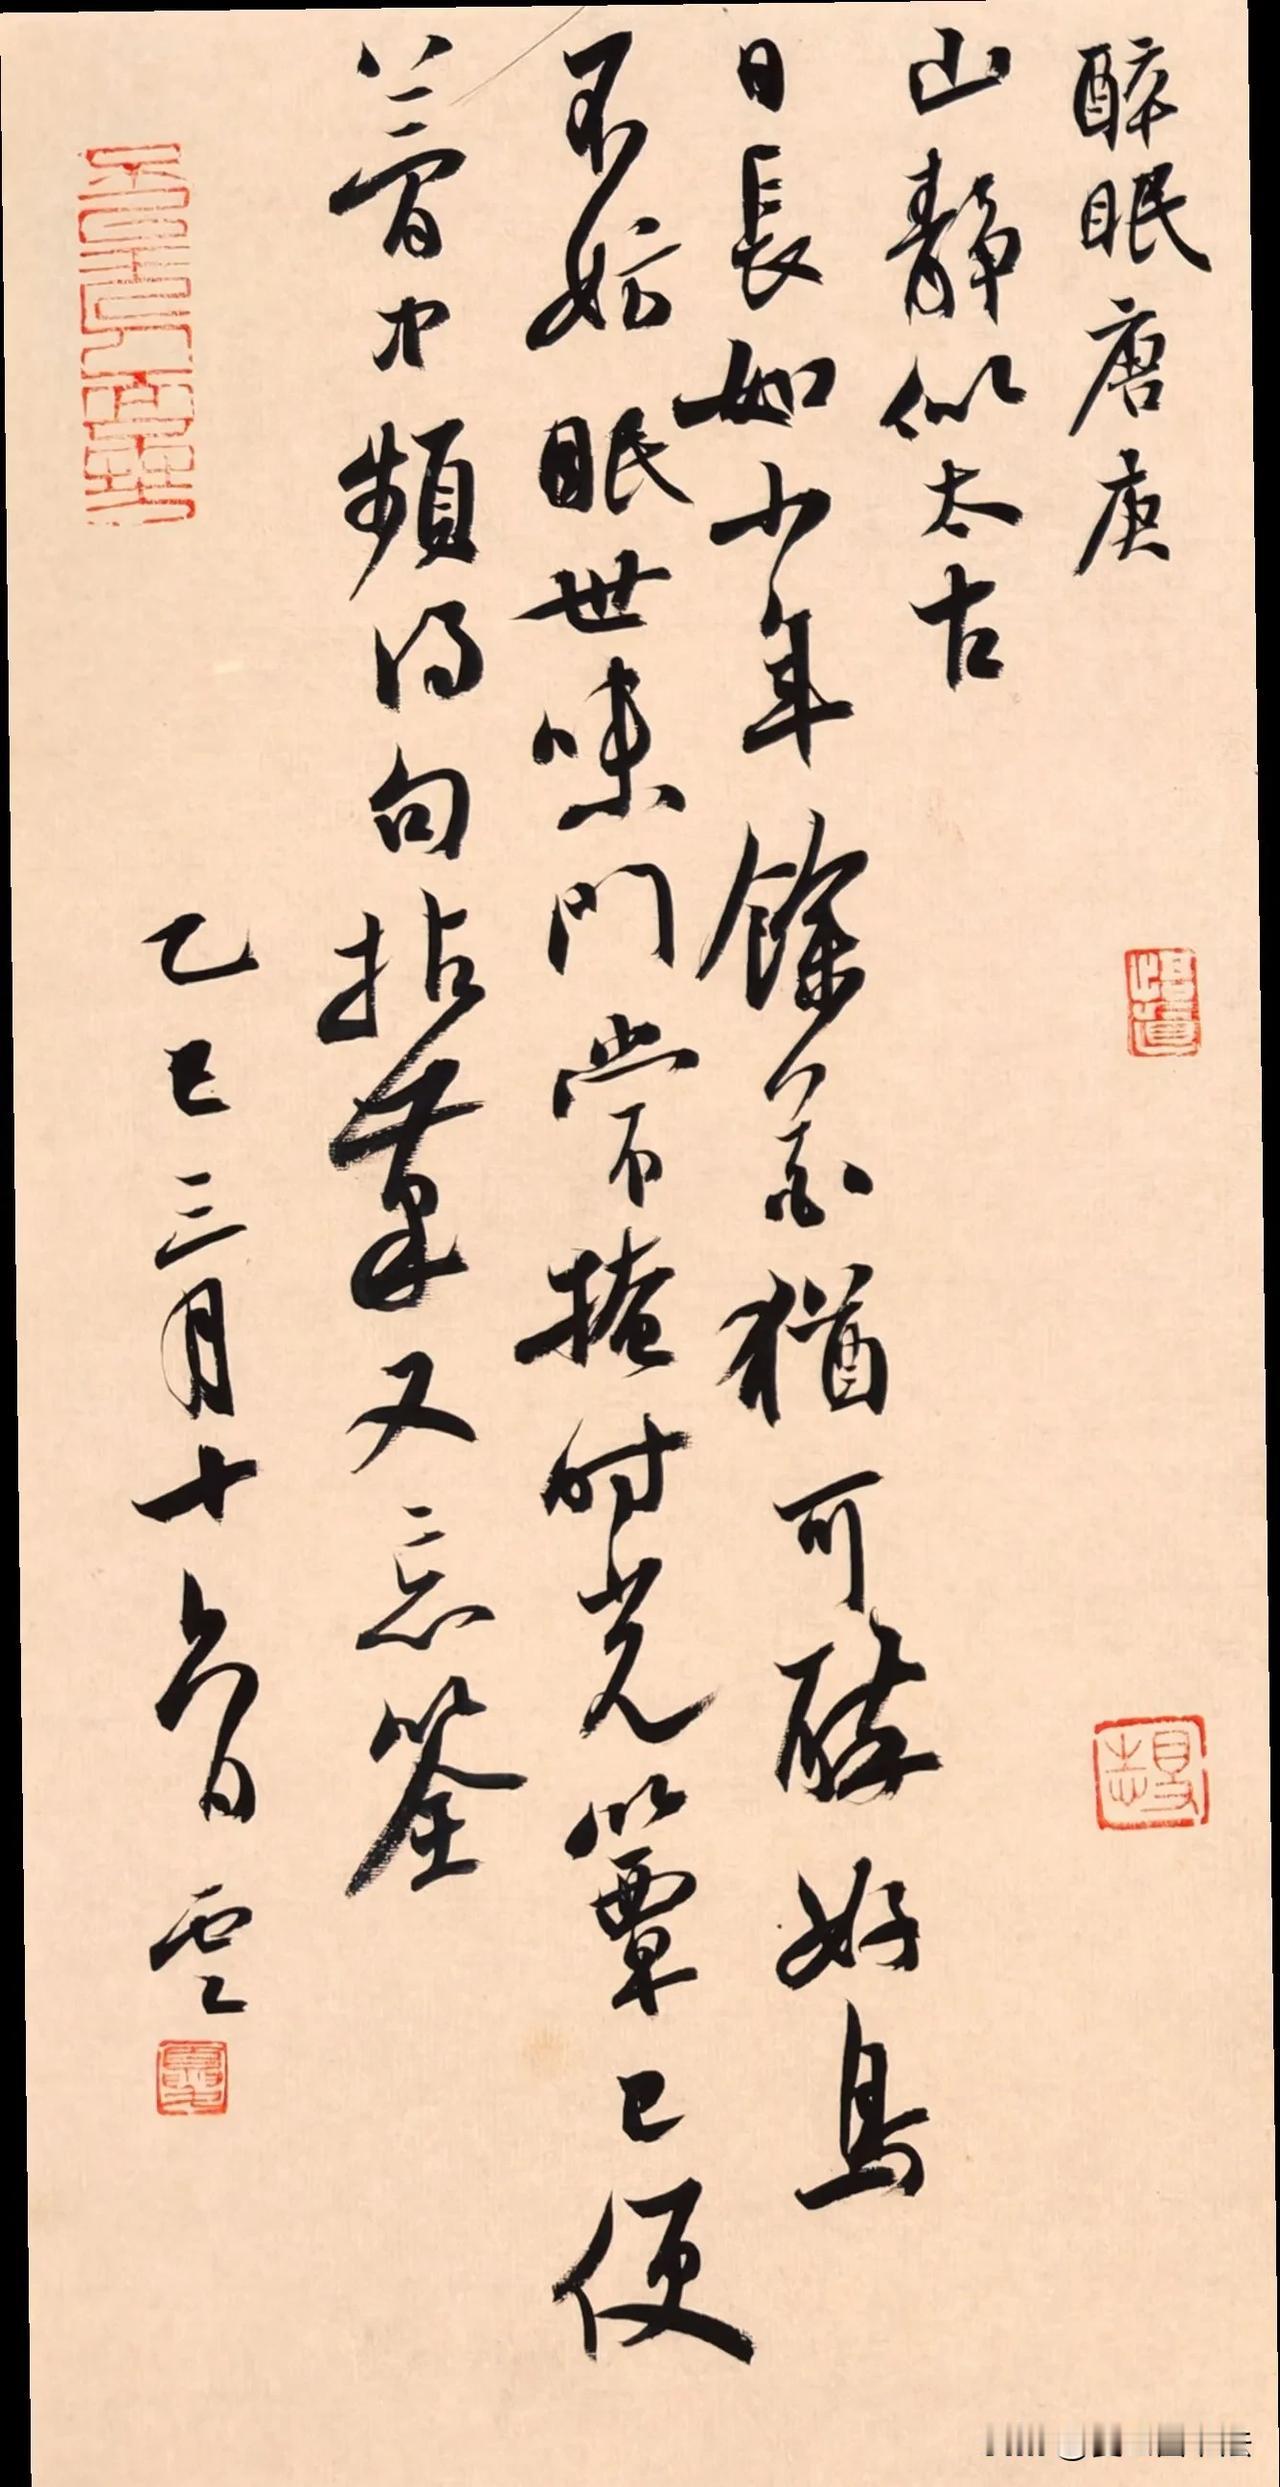 醉眠唐庚
山靜似太古
日長如小年餘花猶可醉好鳥
不妨眠世味門常掩时光簟已便
夢中頻得句拈筆又忘筌
乙巳三月十六日雲